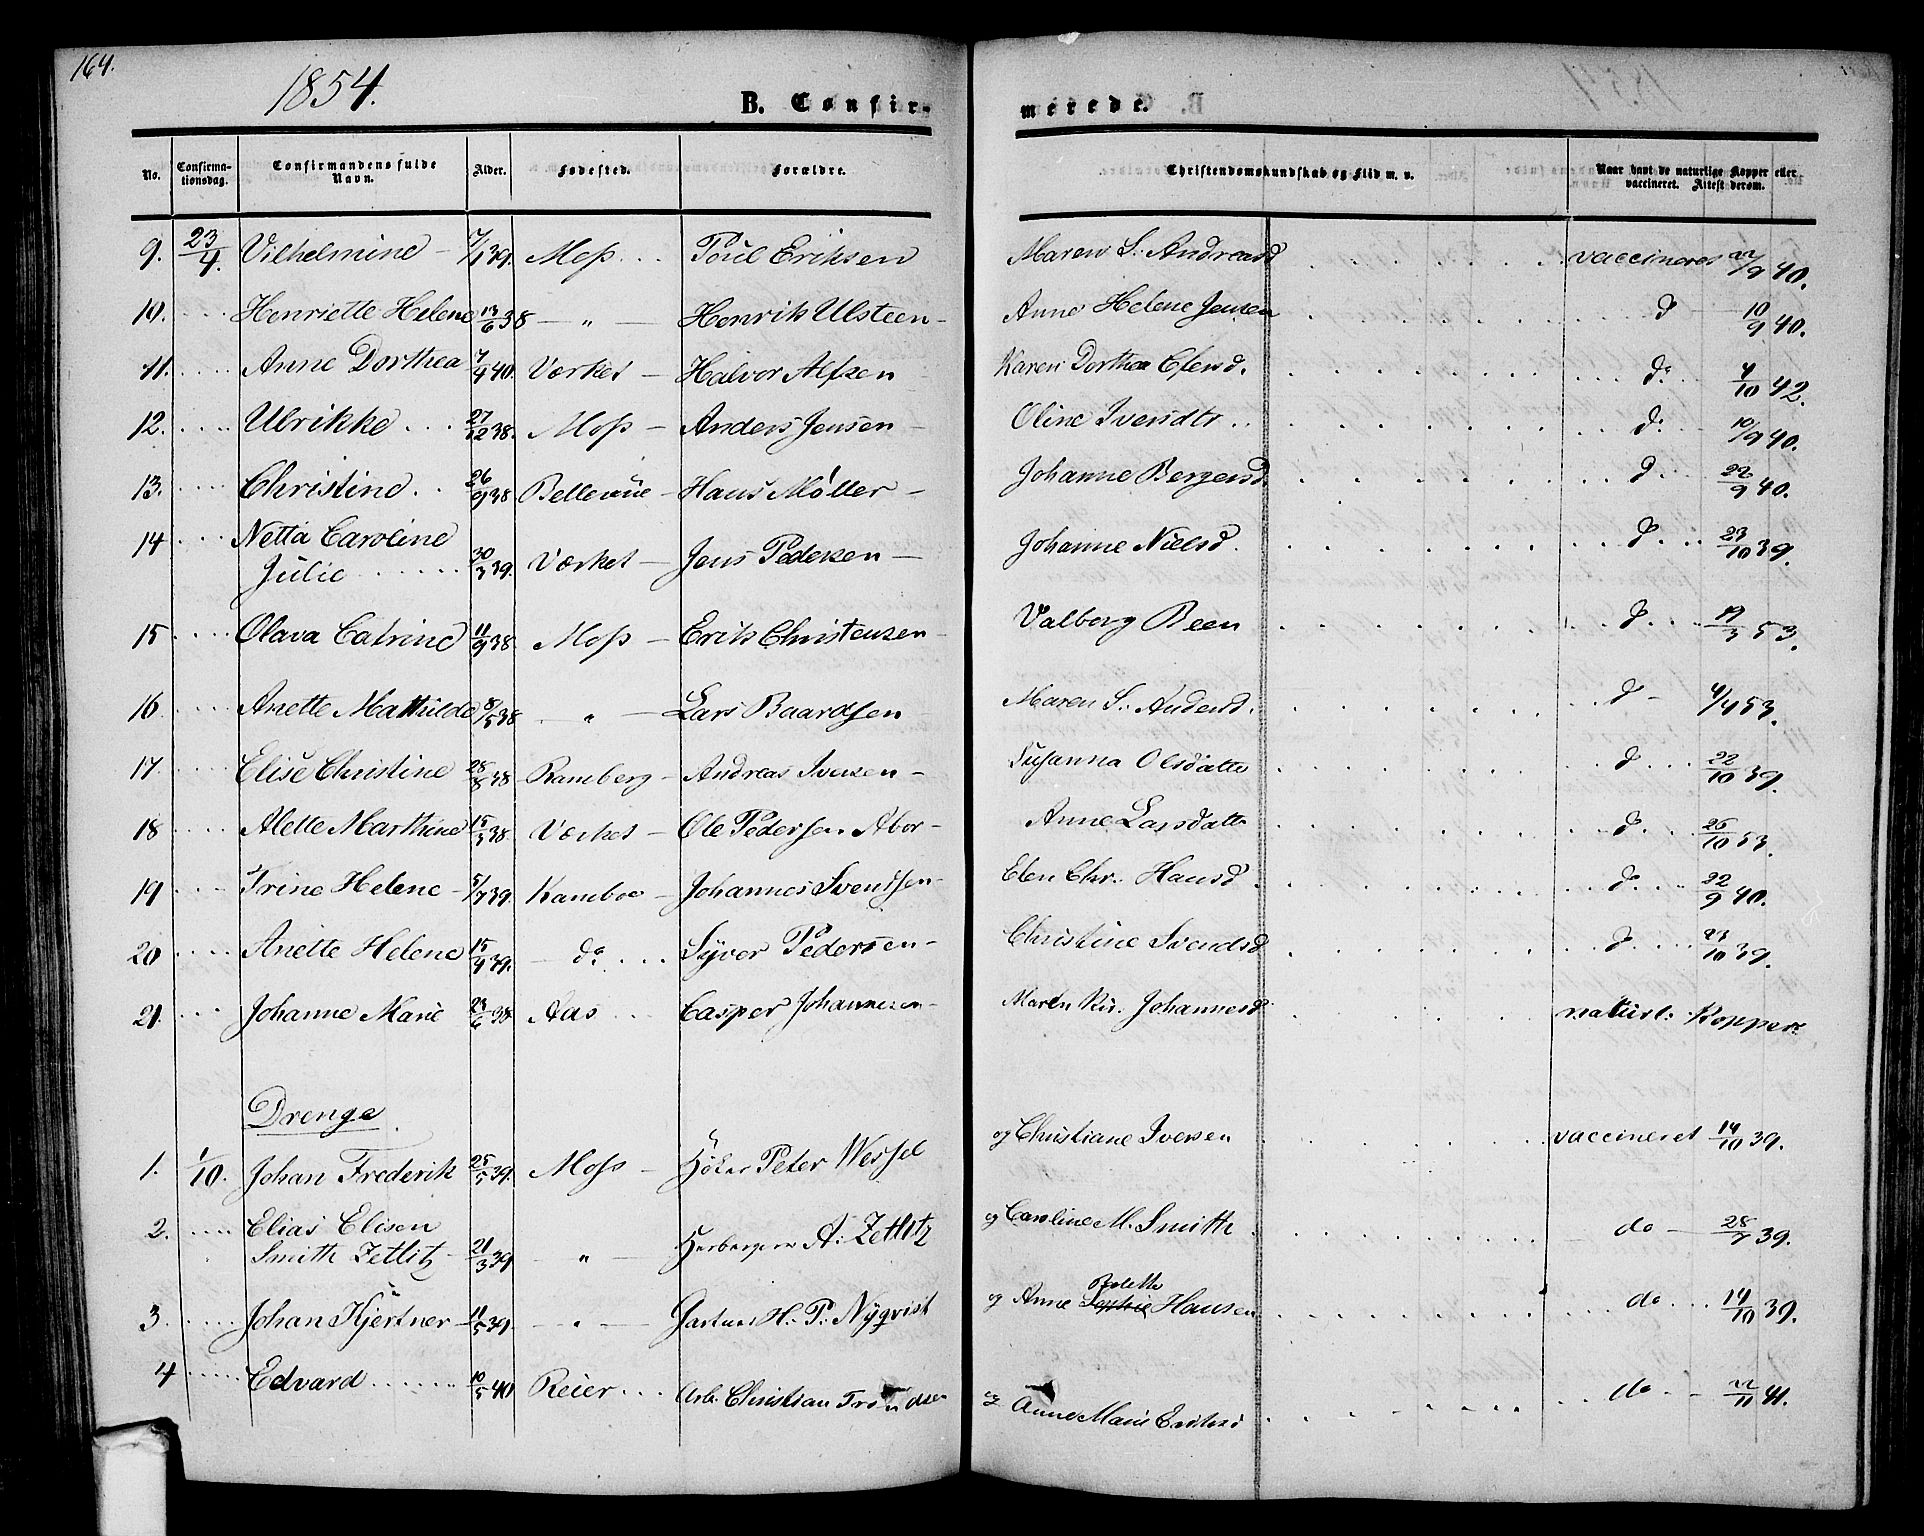 164.
1854.
B. Confir-
merede.
No. Confirma-tionsdag. Confirmandens fulde Navn. Alder. Fødested. Forældre. Christendomskundskab og Flid m. v. Naar havt de naturlige Kopper eller vaccineret. Attest derom.
9. 23/4. Vilhelmine - 7/1 39. Moss ... Poul Eriksen Maren S. Andreasd vaccineres 22/9 40.
10. .... Henriette Helene 13/6 38 — „ — Henrik Ulsteen - Anne Helene Jensen d 10/9 40.
11. .... Anne Dorthea 7/4 40. Værket — Halvor Alfsen Karen Dorthea Elensd. do. 4/10 42.
12. .... Ulrikke ... 27/12 38. Moss — Anders Jensen - Oline Iversdtr .. d: 10/9 40.
13. .... Christine .. 26/9 38 Bellevue - Hans Møller - Johanne Bergersd. d 22/9 40.
14 .... Netta Caroline
Julie ....... 30/3 39. Værket — Jens Pedersen — Johanne Nielsd. d. 23/10 39.
15 .... Olava Catrine 11/9 38. Moss — Erik Christensen - Valborg Been d. 19/3 53.
16 .... Anette Mathilde 8/5 38 — „ — Lars Baardsen Maren S. Andersd. d - 4/4 53.
17 .... Elise Christine 28/8 38 Ramberg - Andreas Iversen - Susanna Olsdatte d 22/10 39.
18 .... Alette Marthine 15/3 38. Værket — Ole Pedersen Abor- Anne Larsdatte d. 26/10 53.
19 .... Trine Helene - 5/7 39. Kamboe — Johannes Svendsen - Elen Chr. Hansd. do 22/9 40.
20 .... Anette Helene 15/4 39. — do ... Syver Pedersen - Christine Svendsd d 23/10 39.
21. ... Johanne Marie 23/6 38 Aas ... Casper Johannesen - Maren Kir. Johannesd naturl: Kopper
Drenge.
1. 1/10. Johan Frederik 25/5 39. Moss — Høker Peter Wessel og Christiane Iversen vaccineret 14/10 39.
2. .... Elias Elisen
Smith Zetlitz - 21/3 39 „ — A: Zetlitz og Caroline M. Smith do — 28/7 39.
3. .... Johan Kjertner - 11/5 39. — „ — Gartner H. P. Nyqvist og Anne Bolette Hansen do ... 14/10 39.
4 .... Edvard ...... 10/5 40 Reier ... Arb. Christian Trondsen og Anne Marie do — 22/11 41.